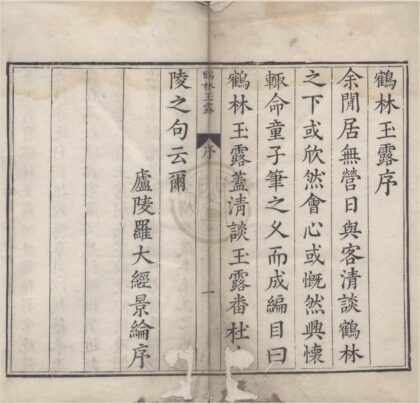 鶴林玉露序
余閒居無營日與客清談鶴林
之下或欣然會心或慨然興懷
輒命童子筆之久而成編目曰
鶴林玉露蓋清談玉露蕃杜
鶴林玉露
序
一
陵之句云爾
廬陵羅大經景綸序